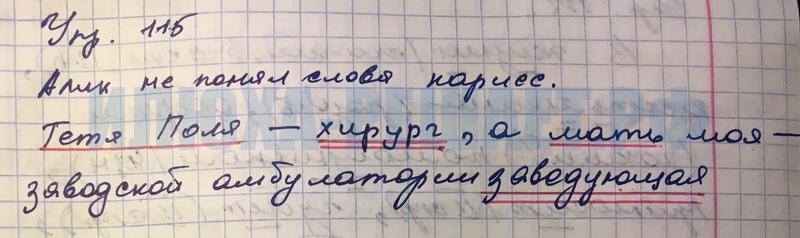 Упр. 115
Алик не понял слова нарисс.
Тетя Поля – хирург, а мать моя –
заводской амбулатории заведующая